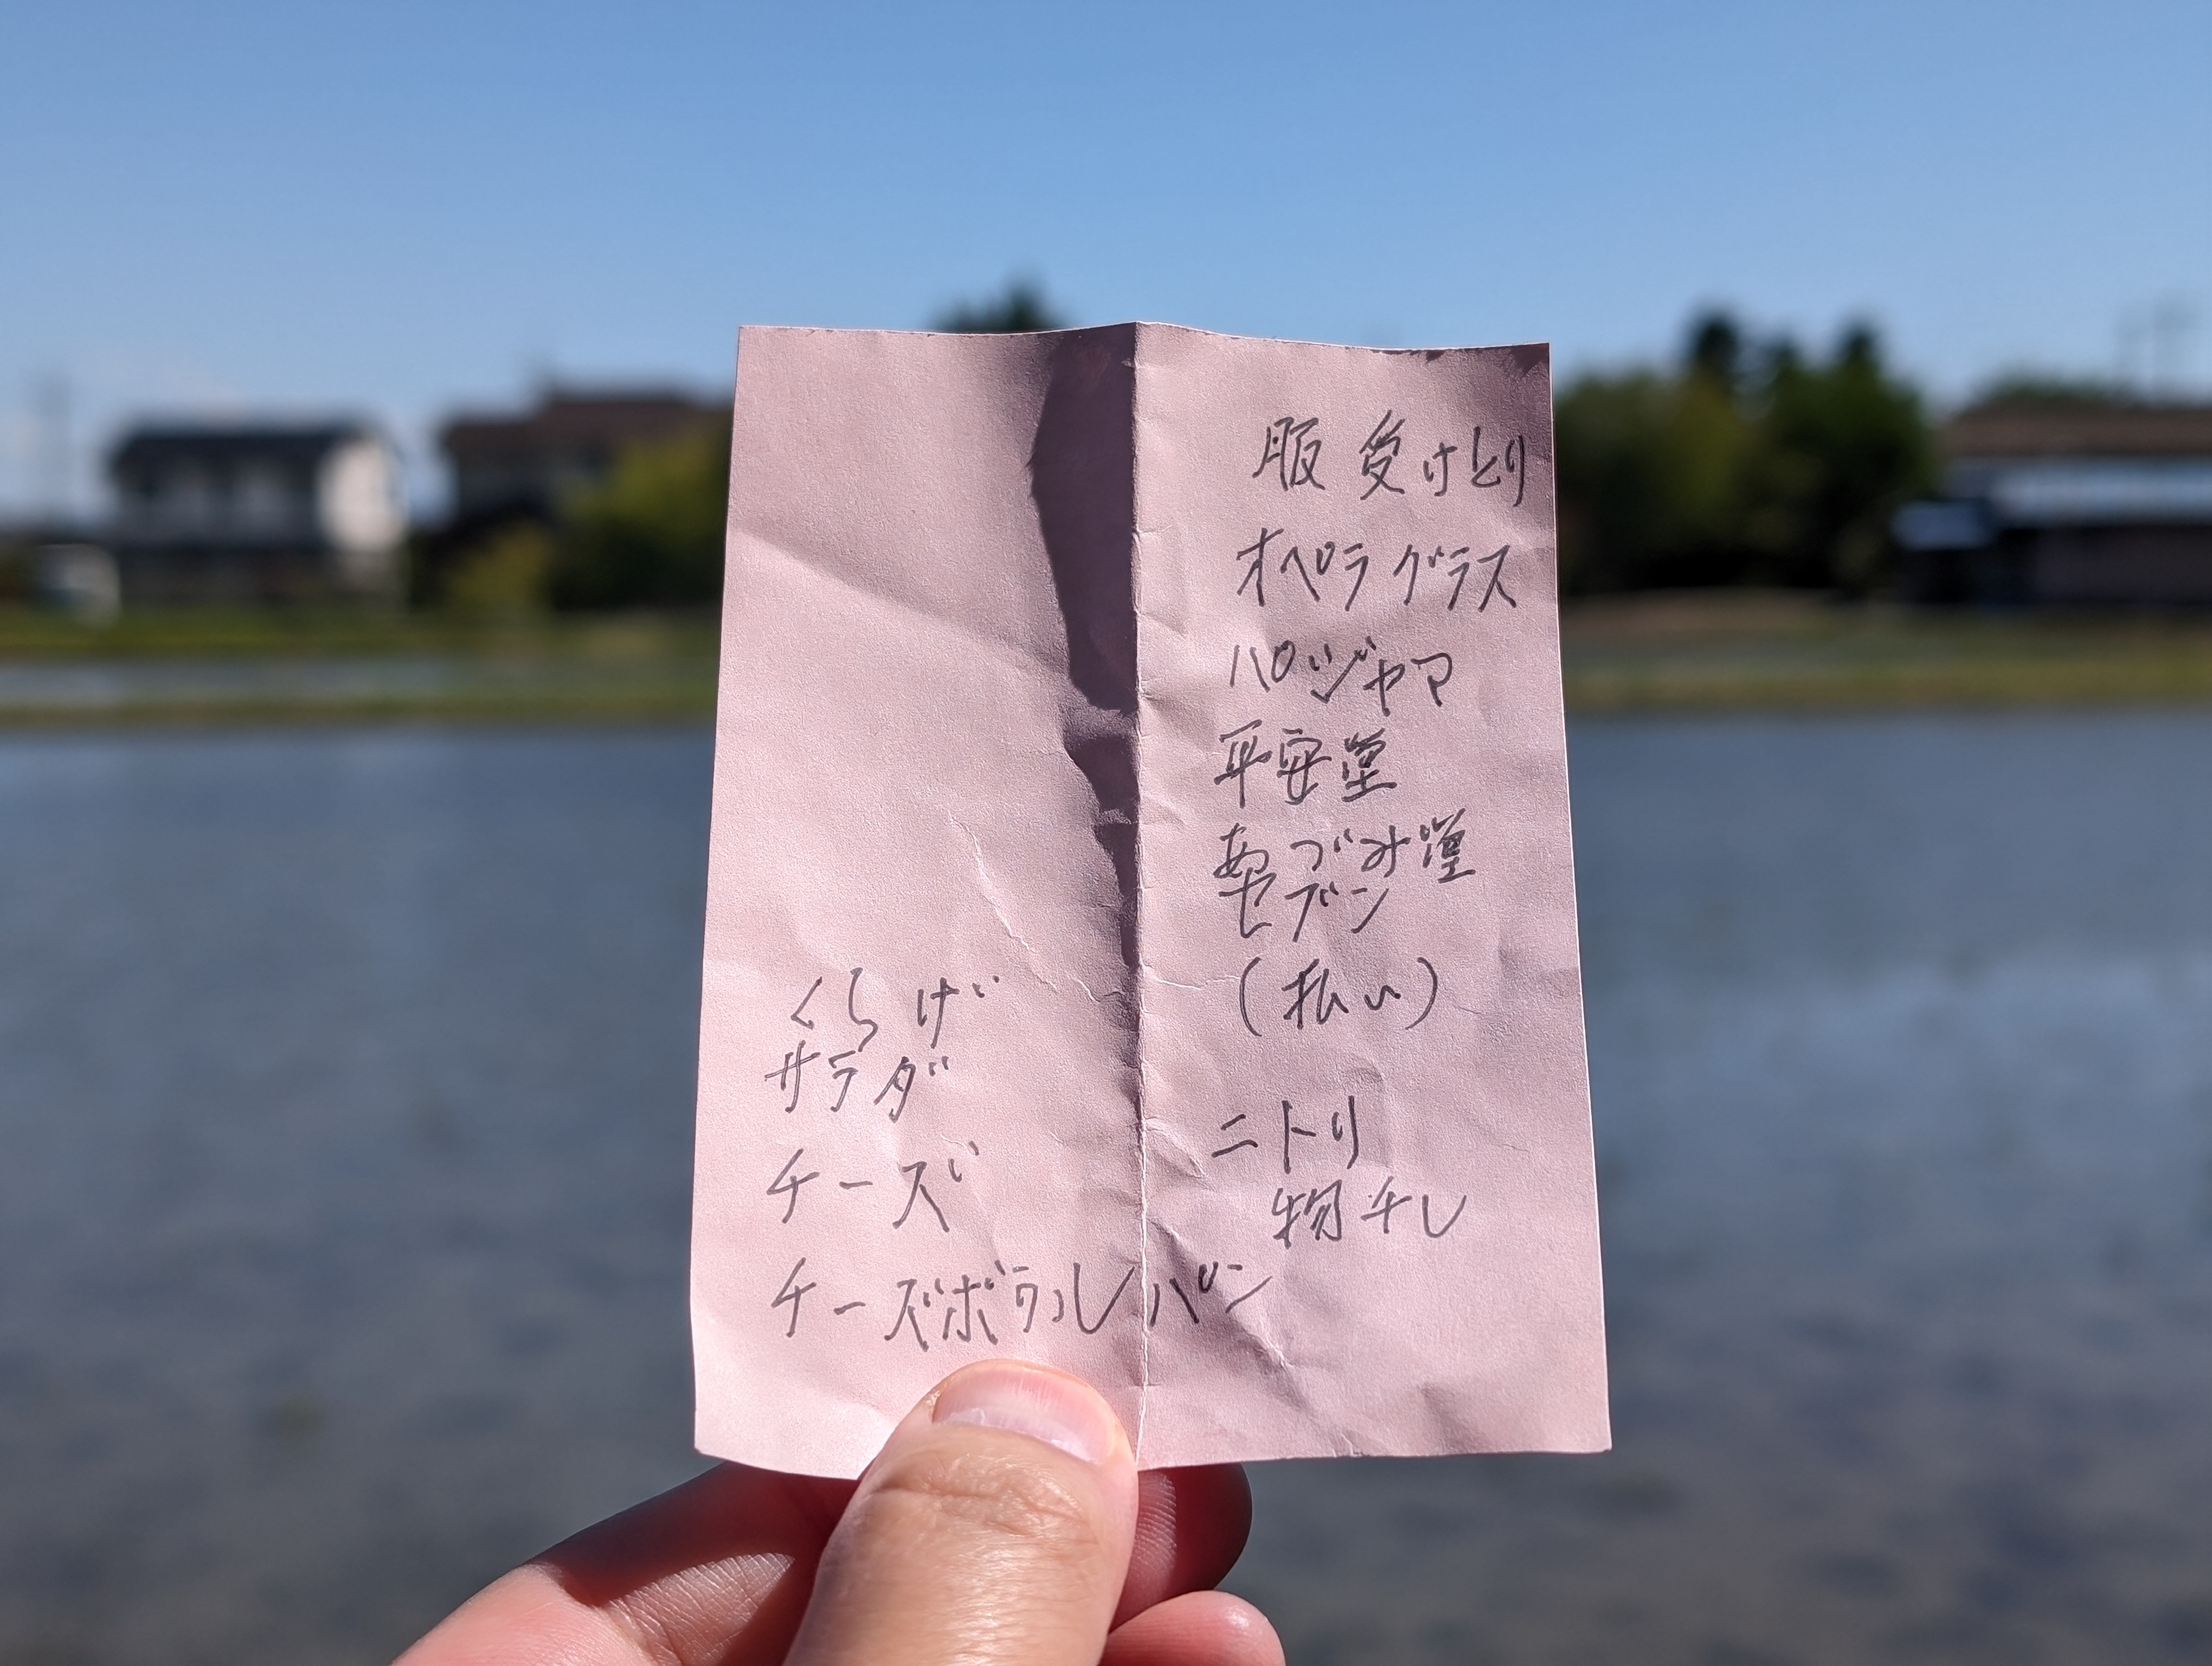 服受けとり
オペラグラス
パジャマ
平安堂
あづみ堂
セブン
(払い)
ニトリ
物干し
くらげ
サラダ
チーズ
チーズボールパン